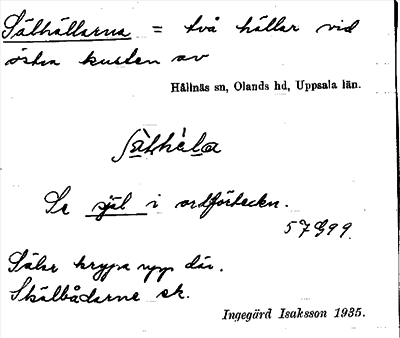 Sälhällarna = två hällar vid
östra kusten av
Hållnäs sn, Olands hd, Uppsala län.
Se själ i ordförteckn.
57G99.
Sälar krypa upp där.
Skälbådarne sk.
Ingegärd Isaksson 1935.